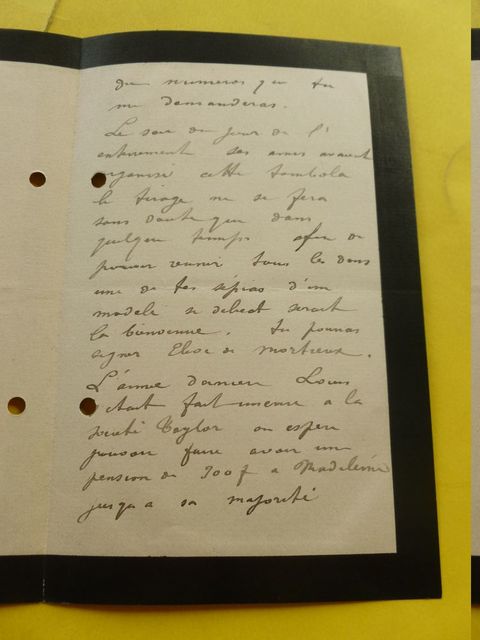 des numeros que tu
me demanderas.
Le soir du jour de l'
enterrement ses amis avaient
organisé cette tombola
le tirage ne se fera
sans doute que dans
quelque temps afin de
pouvoir reunir tous les dons
une de tes sépias d'un
modelé si delicat serait
la bienvenue. tu pourras
signer Elise de Mortieux.
L'année derniere Louis
s'etait fait inscrire a la
societé Taylor on espere
pouvoir faire avoir une
pension de 300f a Madeleine
jusqu'a sa majorité